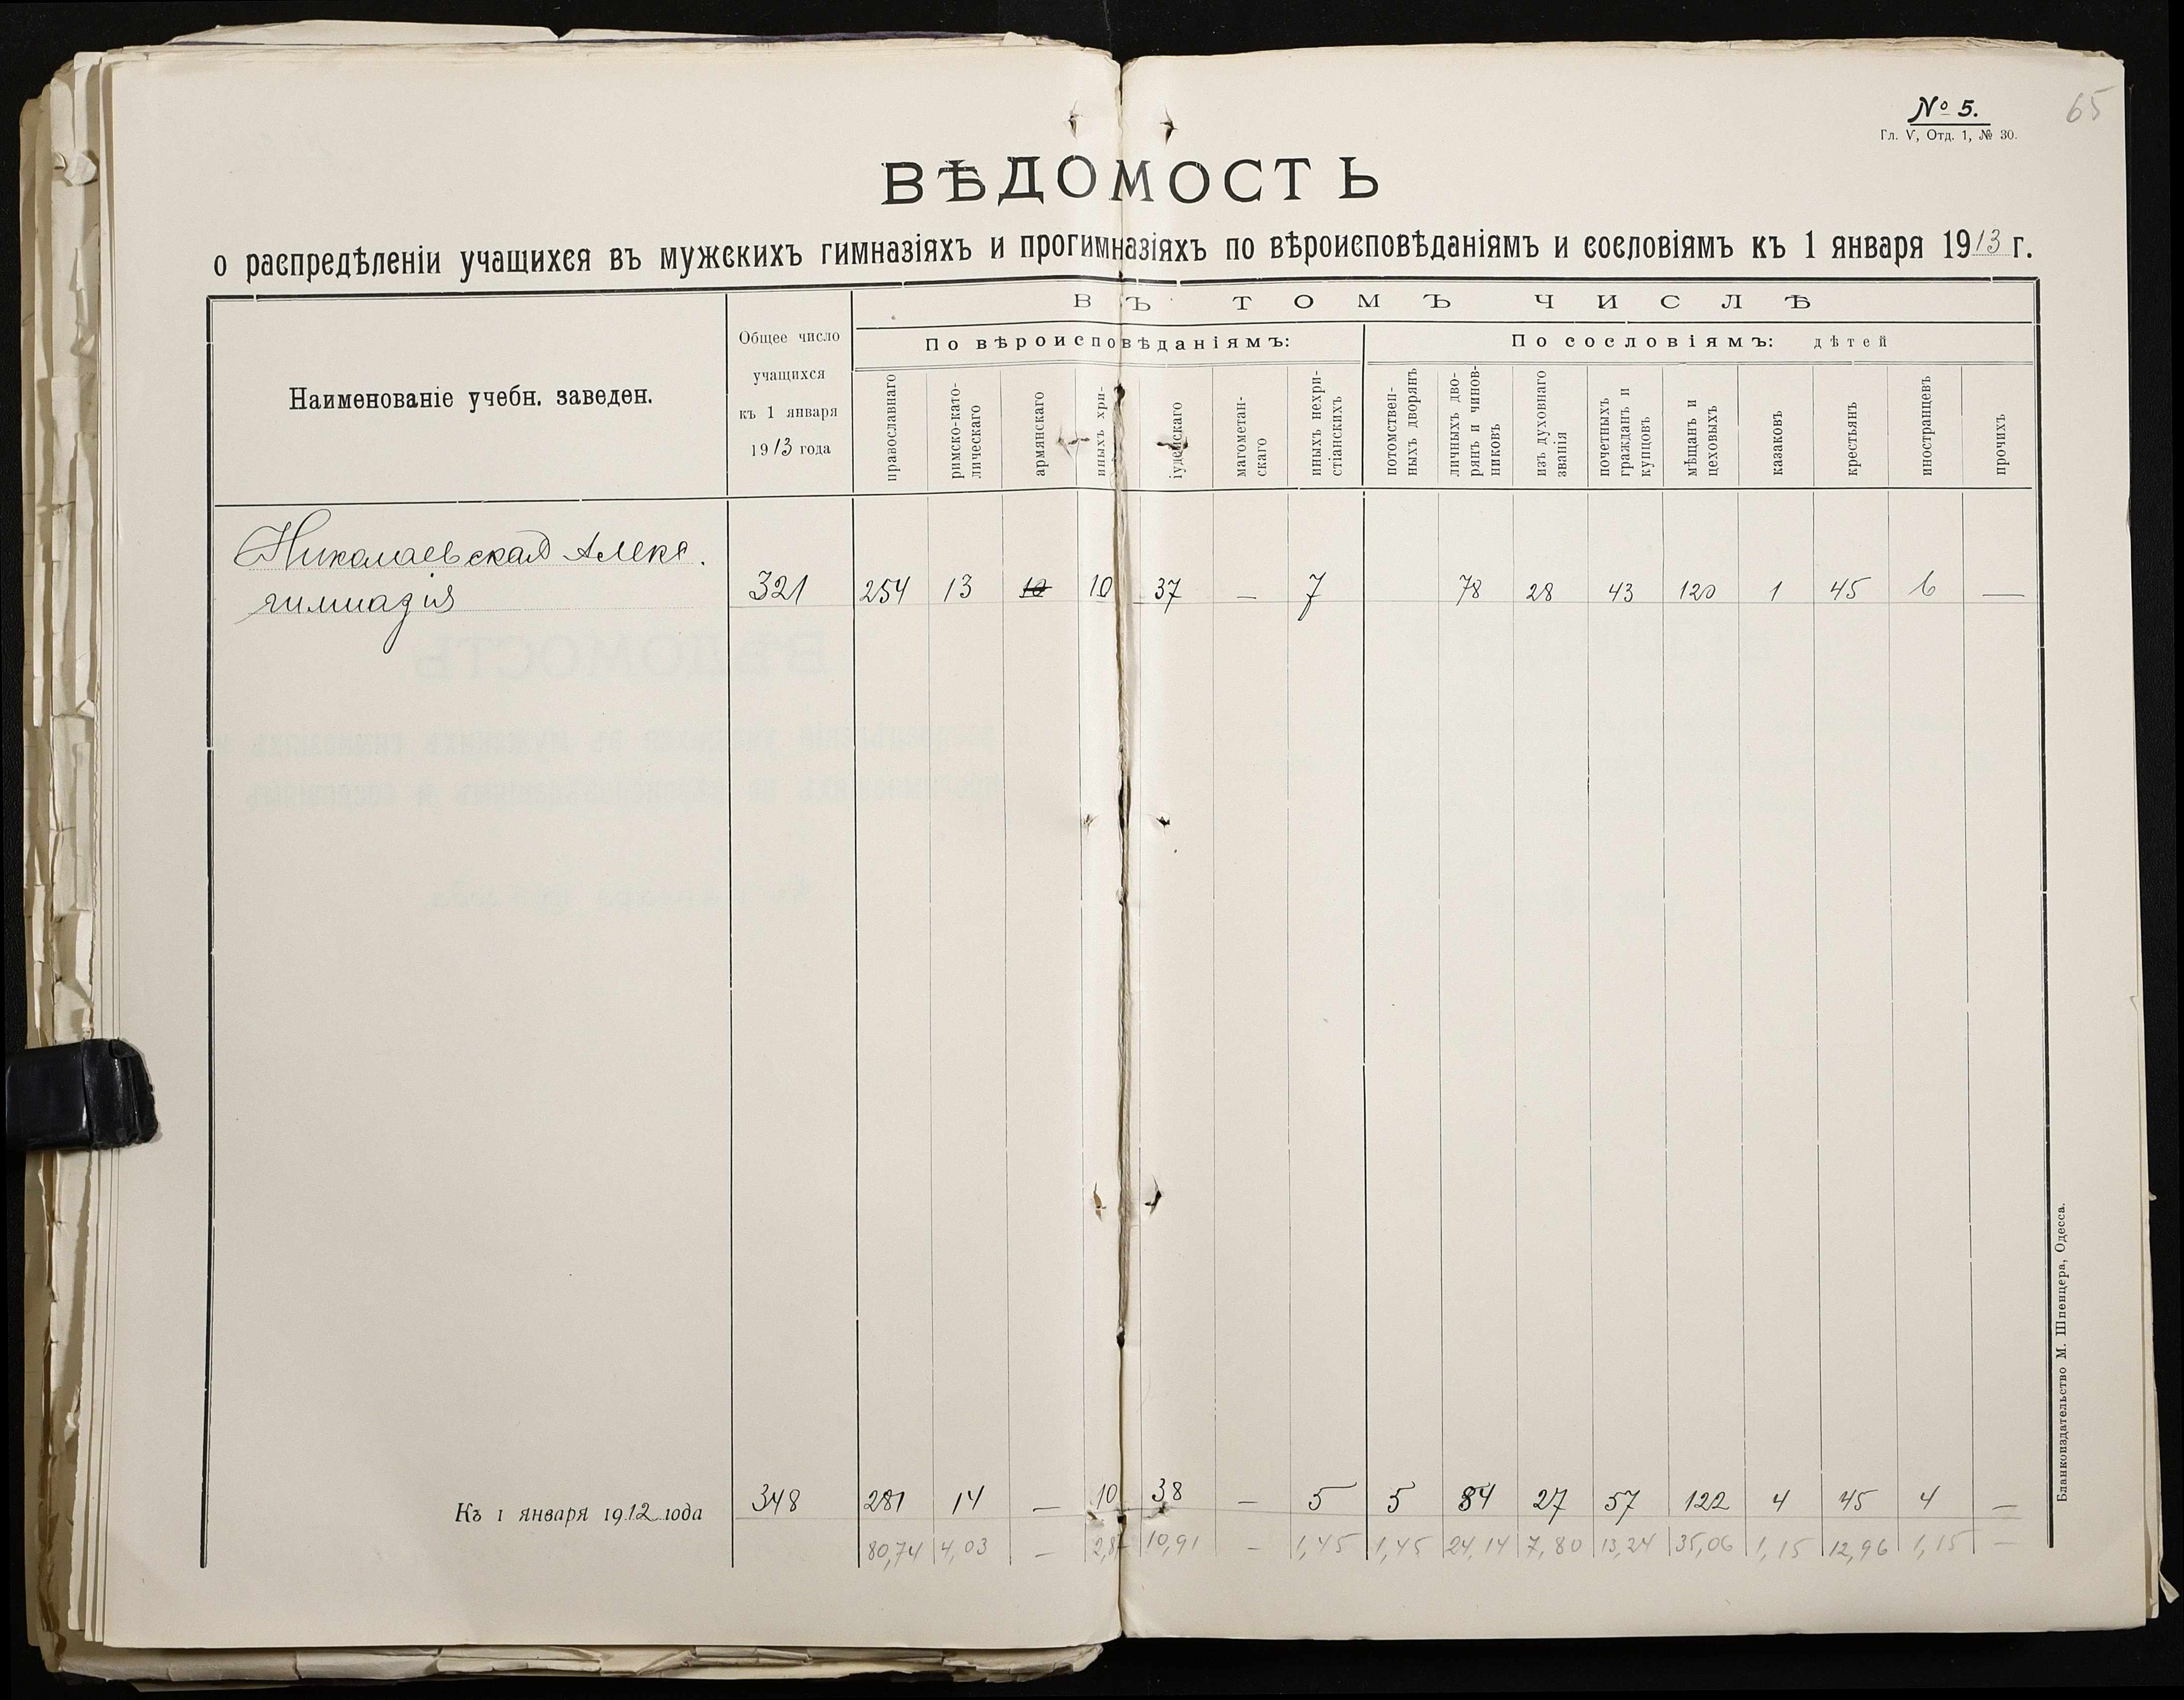 № 5.
Гл. V, Отд. 1, № 30.
65
ВѢДОМОСТЬ
о распредѣленіи учащихся въ мужскихъ гимназіяхъ и прогимназіяхъ по вѣроисповѣданіямъ и сословіямъ къ 1 января 1913 г.
Наименованіе учебн. заведен.
Общее число
учащихся
къ 1 января
1913 года
ВЪ ТОМЪ ЧИСЛѢ
По вѣроисповѣданіямъ:
По сословіямъ: дѣтей
православнаго
римско-като-
лическаго
армянскаго
иныхъ хри-
іудейскаго
магометан-
скаго
иныхъ нехри-
стіанскихъ
потомствен-
ныхъ дворянъ
личныхъ дво-
рянъ и чинов-
никовъ
изъ духовнаго
званія
почетныхъ
гражданъ и
купцовъ
мѣщанъ и
цеховыхъ
казаковъ
крестьянъ
иностранцевъ
прочихъ
Николаевская Алекс.
гимназія
321 254 13 10 10 37 — 7 78 28 43 120 1 45 6 —
Къ 1 января 1912 года 348 281 14 — 10 38 — 5 5 84 27 57 122 4 45 4 —
80,74 4,03 — 2,87 10,91 — 1,45 1,45 24,14 7,80 13,24 35,06 1,15 12,96 1,15 —
Бланкоиздательство М. Шпенцера, Одесса.